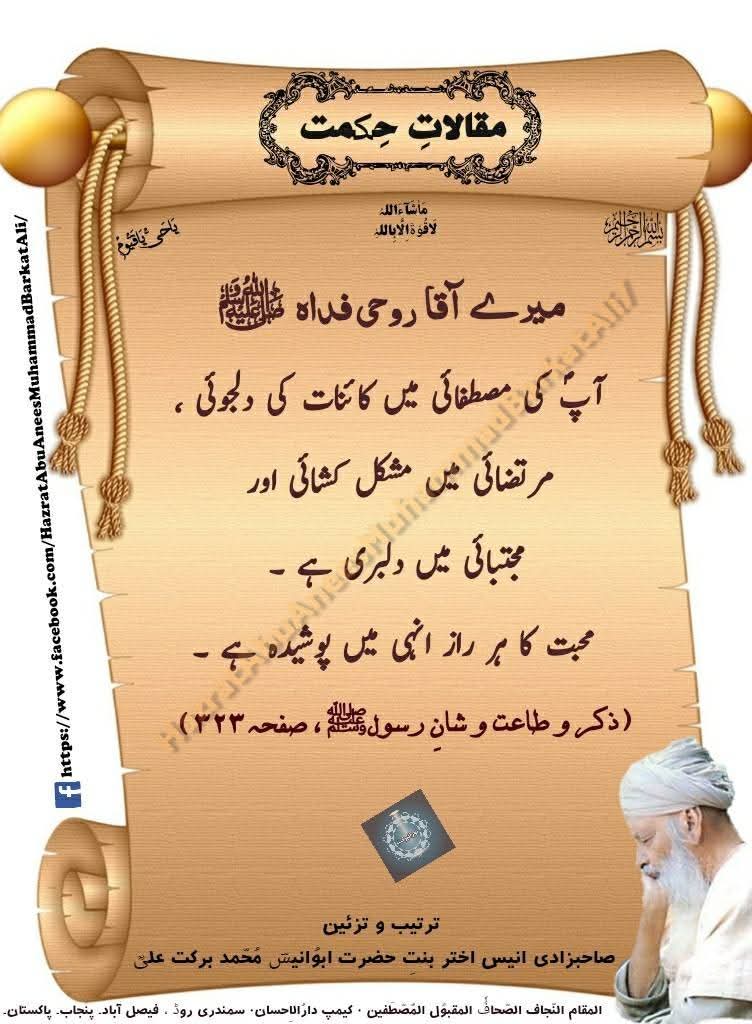 مقالاتِ حِکمت
مَاشَآءَاللہُ
لَاقُوَۃَ اِلَّا بِاللہِ
بِسْمِ اللهِ الرَّحْمٰنِ الرَّحِيْمِ
یَاحَیُّ یَاقَیُّوْمُ
میرے آقا روحی فداہ ﷺ
آپؐ کی مصطفائی میں کائنات کی دلجوئی ،
مرتضائی میں مشکل کشائی اور
مجتبائی میں دلبری ہے ۔
محبت کا ہر راز انہی میں پوشیدہ ہے ۔
(ذکر و طاعت و شانِ رسول ﷺ ، صفحہ ۳۲۳)
ترتیب و تزئین
صاحبزادی انیس اختر بنتِ حضرت ابوُانیس مُحمّد برکت علیؒ
المقام النّجاف الصّحافؒ المقبوُل المّصّطفین ۰ کیمپ دارُالاحسان۰ سمندری روڈ ، فیصل آباد۔ پنجاب۔ پاکستان۔
https://www.facebook.com/HazratAbuAneesMuhammadBarkatAli/
HazratAbuAneesMuhammadBarkatAli/